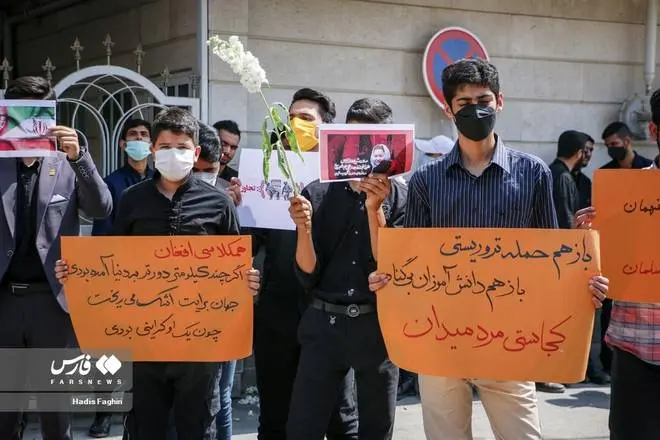 همکلاسی افغان
اگر چند کیلومتری دورتر به دنیا آمده بودی
جهان برایت اشک می ریخت
چون یک اوکراینی بودی
باز هم حمله تروریستی
باز هم دانش آموزان بی گناه
کجاستی مرد میدان
فارس
FARSNEWS
Hadis Faghiri